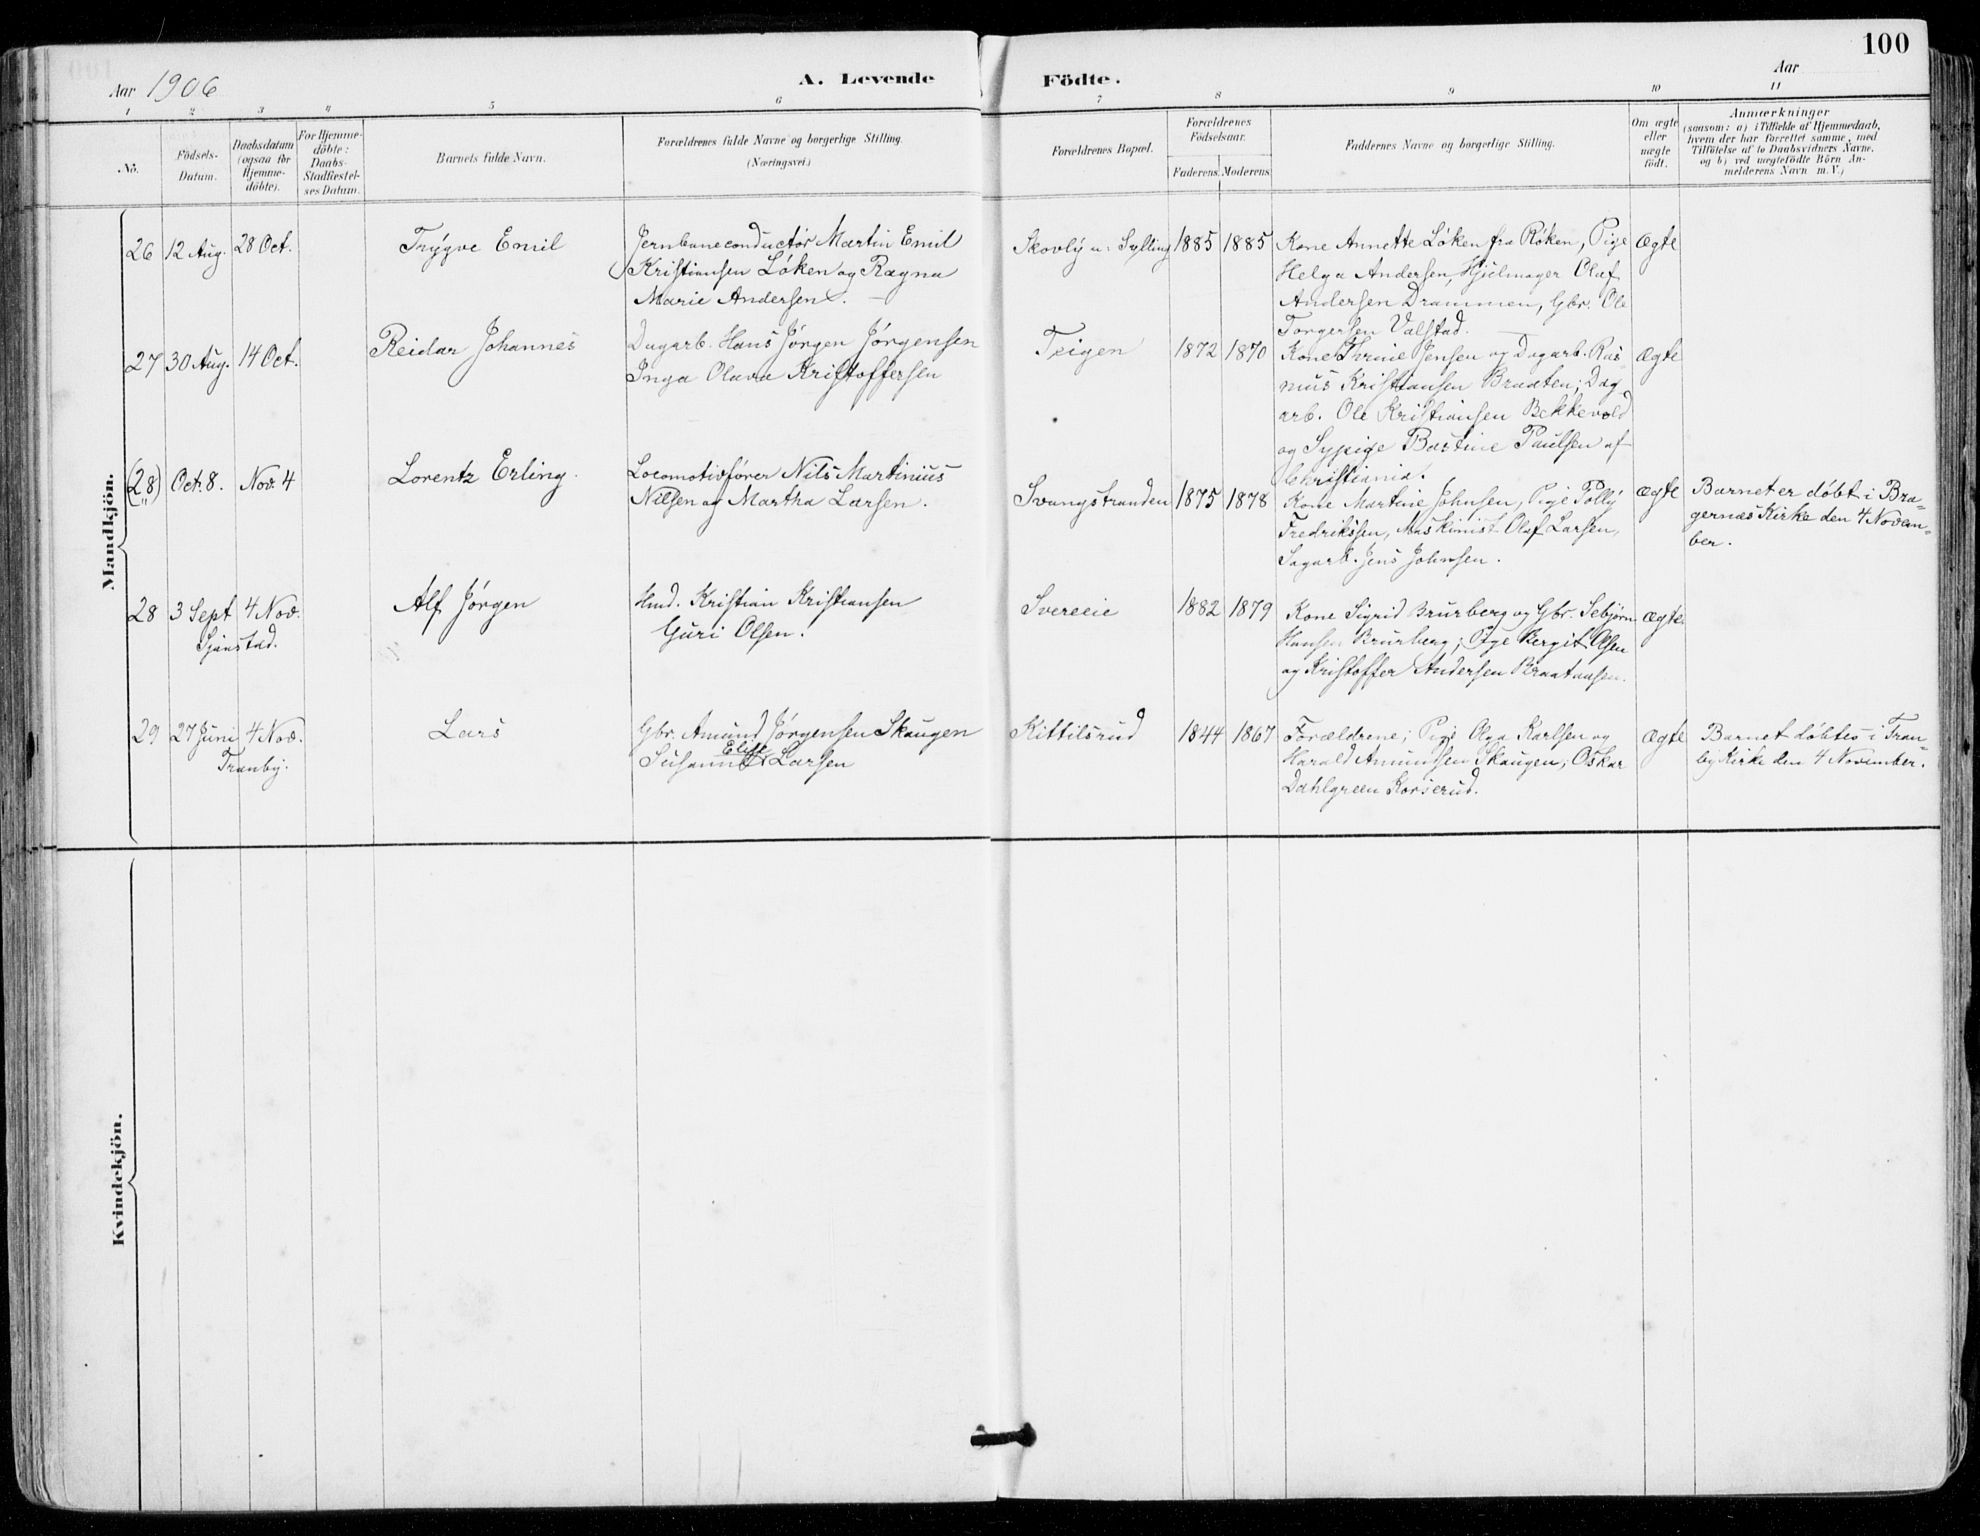 100
Aar 1906
A. Levende Födte.
Aar
1 2 3 4 5 6 7 8 9 10 11
No.
Födsels-
Datum.
Daabsdatum
(ogsaa for
Hjemme-
döbte).
For Hjemme-
döbte:
Daabs-
Stadfæstel-
ses Datum.
Barnets fulde Navn.
Forældrenes fulde Navne og borgerlige Stilling.
(Næringsvei.)
Forældrenes Bopæl.
Forældrenes
Födselsaar.
Faderens. Moderens.
Faddernes Navne og borgerlige Stilling.
Om ægte
eller
uægte
födt.
Anmærkninger
(saasom: a) i Tilfælde af Hjemmedaab,
hvem der har forrettet samme, med
Tilföielse af to Daabsvidners Navne,
og b) ved uægtefödte Börn An-
melderens Navn m. V.)
Mandkjön.
26 12 Aug. 28 Oct. Trygve Emil
Jernbaneconductör Martin Emil
Kristiansen Löken og Ragna
Marie Andersen.
Skovly u. Sylling 1885 1885
Kone Annette Löken fra Röken, Pige
Helga Andersen, Hjulmager Olaf
Andersen Drammen, Gbr. Ole
Torgersen Valstad.
Ægte
27 30 Aug. 14 Oct. Reidar Johannes
Dagarb. Hans Jörgen Jörgensen
Inga Olava Kristoffersen
Teigen 1872 1870
Kone Trine Jensen og Dagarb. Ras
mus Kristiansen Braaten; Dag
arb. Ole Kristiansen Bekkevold
og Sypige Bastine Paulsen af
Christiania.
Ægte
(28) Oct. 8. Nov. 4 Lorentz Erling.
Locomotivförer Nils Martinius
Nilsen og Martha Larsen.
Svangstranden 1875 1878
Kone Martine Johnsen, Pige Polly
Fredriksen, Maskinist Olaf Larsen,
Sagarb. Jens Johnsen.
ægte
Barnet er döbt i Bra-
gernæs Kirke den 4 Novem-
ber.
28 3 Sept 4 Nov.
Sjaastad.
Alf Jörgen
Hmd. Kristian Kristiansen
Guri Olsen.
Svereeie 1882 1879
Kone Sigrid Brurberg og Gbr. Sebjörn
Hansen Brurberg; Pige Bergit Olsen
og Kristoffer Andersen Braataasen.
Ægte
29 27 Juni 4 Nov.
Tranby.
Lars
Gbr. Amund Jörgensen Skaugen
Elise
Susanne Larsen
Kittilsrud 1844 1867
Forældrene; Pige Olga Karlsen og
Harald Amundsen Skaugen; Oskar
Dahlgreen Korserud.
Ægte
Barnet döbtes i Tran-
by Kirke den 4 November.
Kvindekjön.